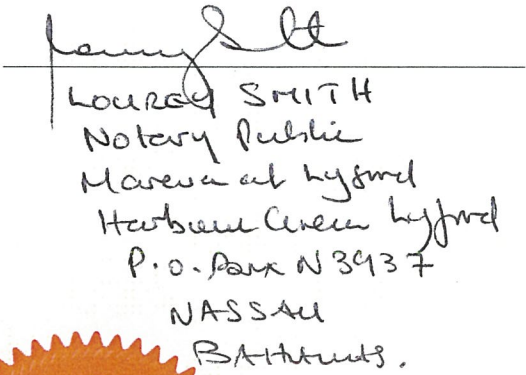 LOUREY SMITH
Notary Public
Mareva at Lyford
Harbour Green Lyford
P.O. Box N 3937
NASSAU
BAHAMAS.